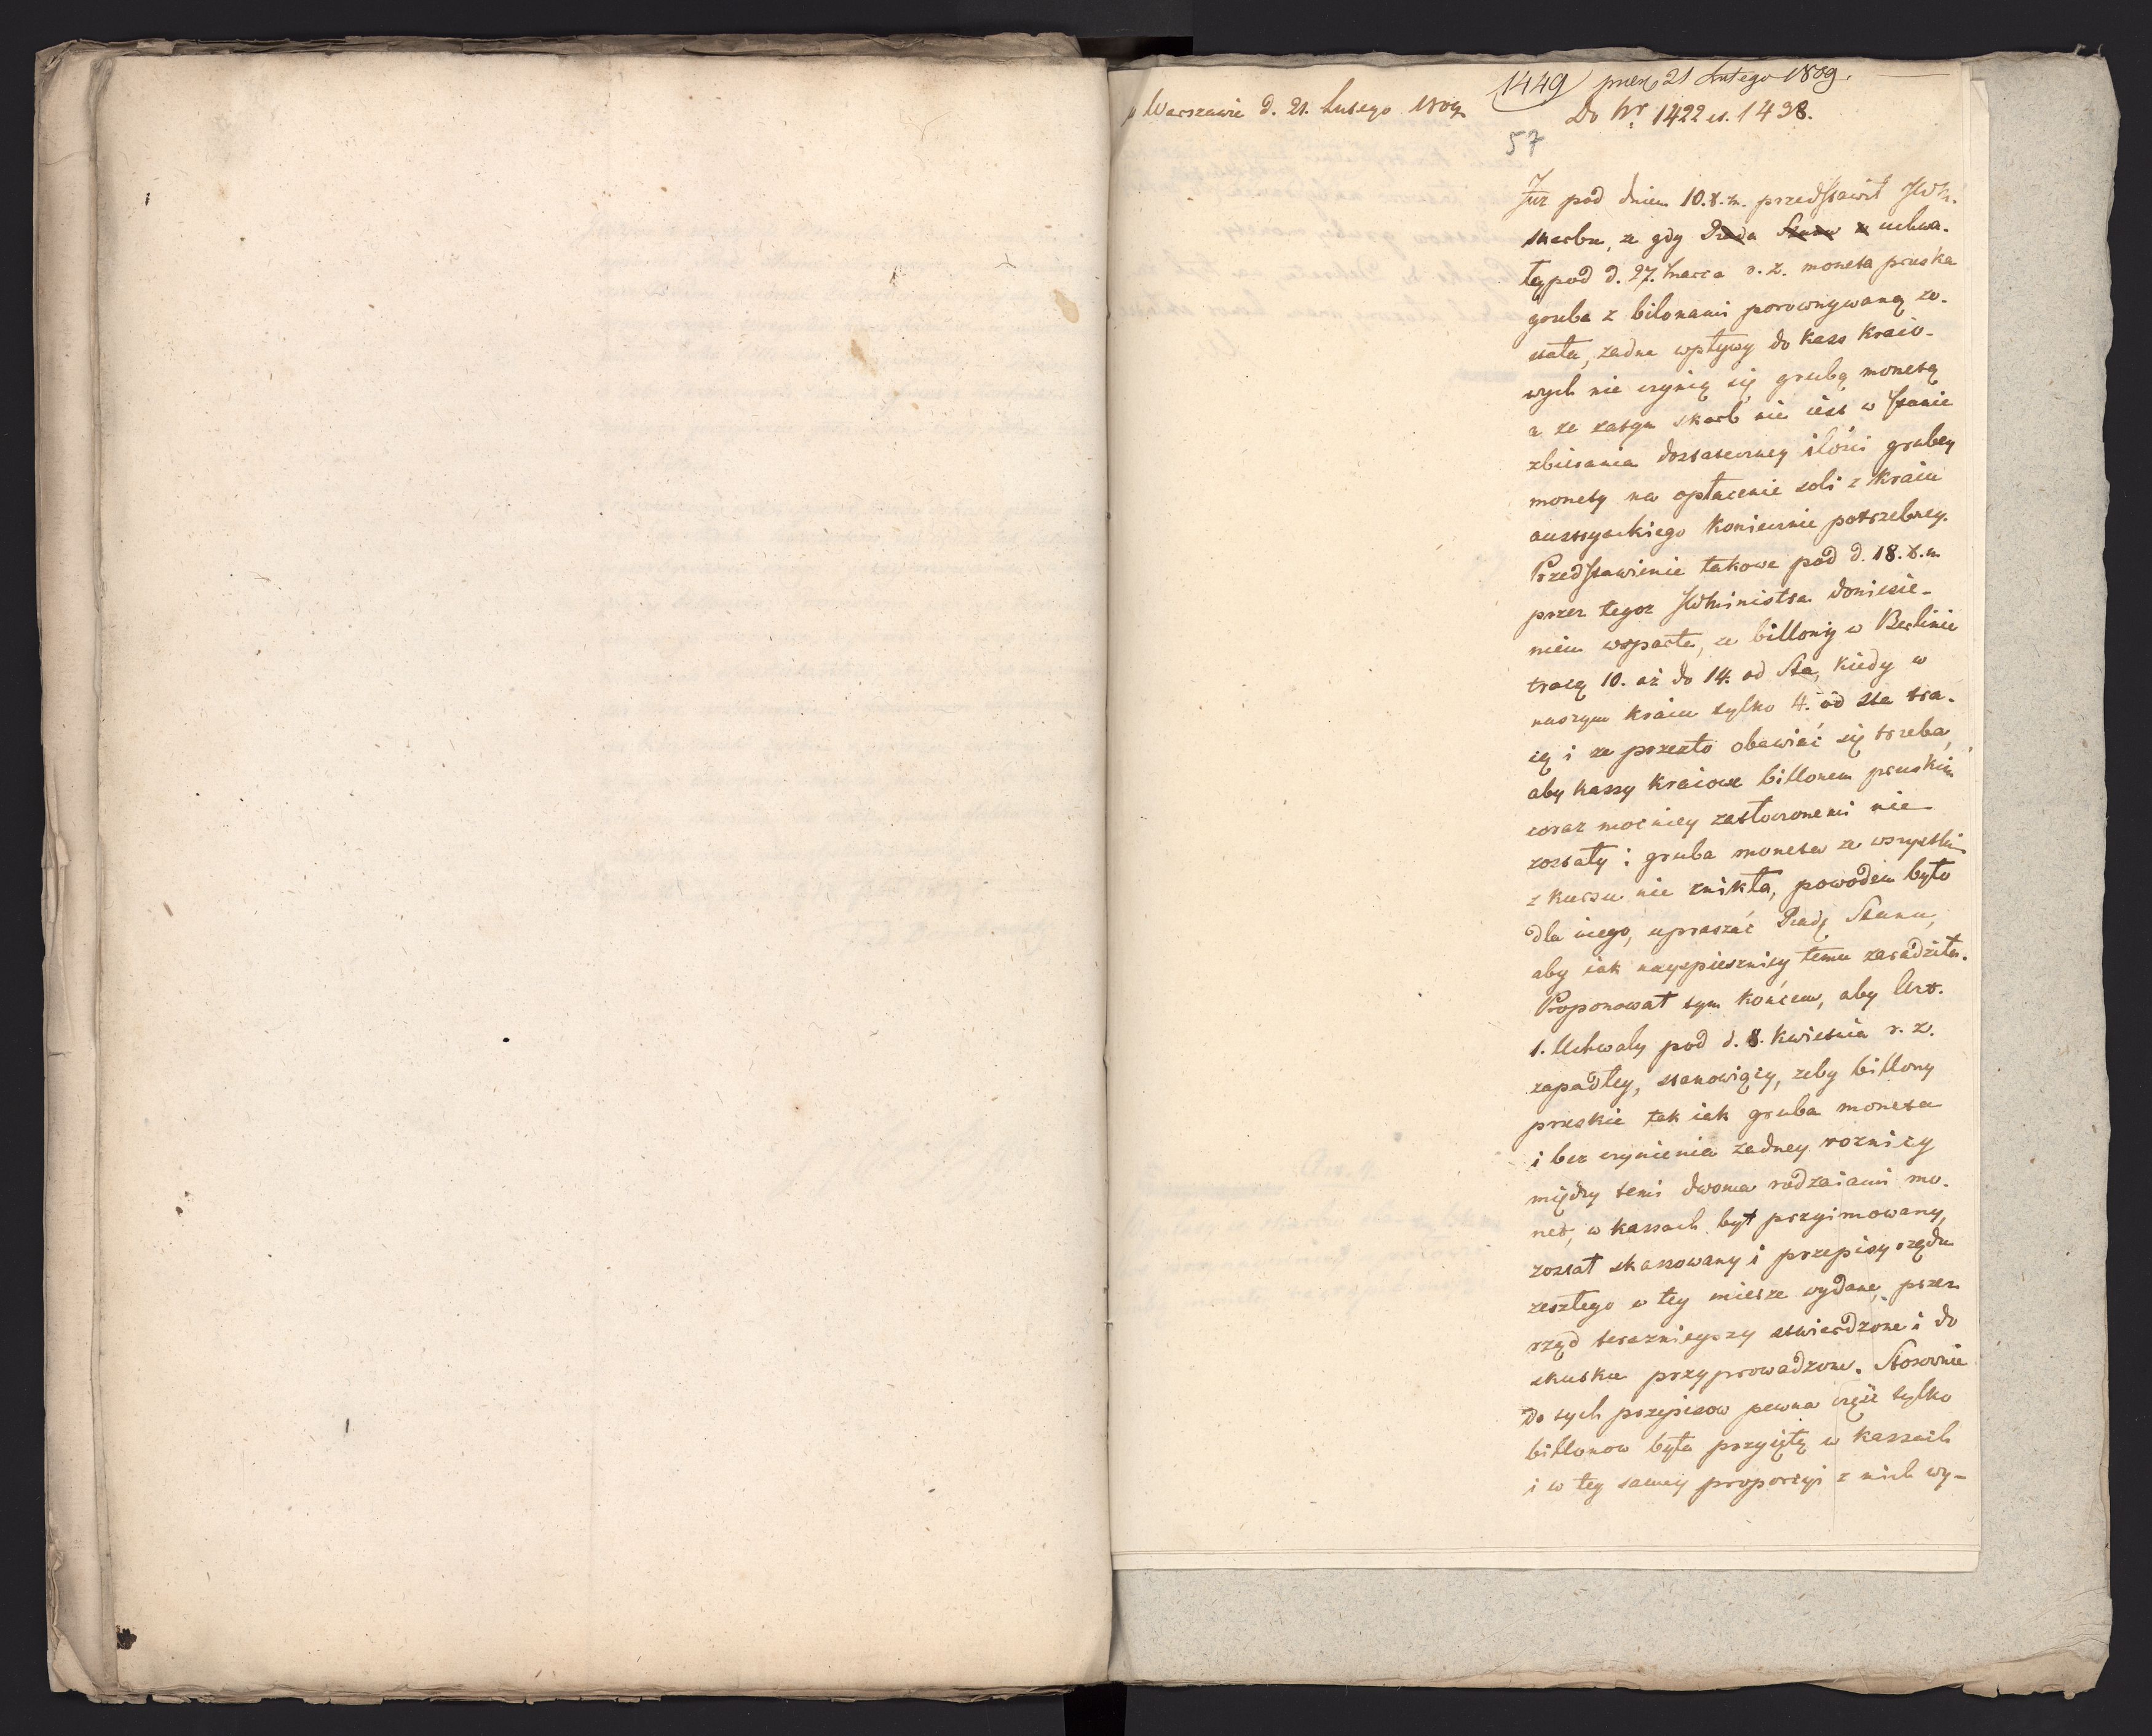 1449 pres 21 Lutego 1809.
w Warszawie d. 21. Lutego 1809
Do Nr 1422 et. 1438.
57
Już pod dniem 10. b. m. przedstawił JWM.
skarbu, że gdy Rada Stanu w uchwa-
łą pod d. 27. marca r. z. moneta pruska
gruba z bilonami porownywaną zo-
stała, żadne wpływy do kass kraio-
wych nie czynią się grubą monetą
a że zatym skarb nie iest w stanie
zbierania dostateczney ilości grubey
monety na opłacenie soli z kraiu
austryackiego koniecznie potrzebney.
Przedstawienie takowe pod d. 18. b. m.
przez tegoż JWMinistra doniesie-
niem wsparte, że billony w Berlinie
tracą 10. aż do 14. od sta, kiedy w
naszym kraiu tylko 4. od sta tra-
cą i że przeto obawiać się trzeba,
aby kassy kraiowe billonem pruskim
coraz mocniey zatłoczonemi nie
zostały i gruba moneta ze wszystkim
z kursu nie znikła, powodem było
dla niego, upraszać Radę Stanu,
aby iak nayspieszniey temu zaradziła.
Proponował tym końcem, aby Art.
1. Uchwały pod d. 8. kwietnia r. z.
zapadłey, stanowiący, żeby billony
pruskie tak iak gruba moneta
i bez czynienia żadney roznicy
między temi dwoma rodzaiami mo-
net, w kassach był przyimowany,
został skassowany i przepisy rządu
zeszłego w tey mierze wydane, przez
rząd teraznieyszy stwierdzone i do
skutku przyprowadzone. Stosownie
do tych przepisow pewna część tylko
billonow była przyiętą w kassach
i w tey samey proporcyi z nich wy-